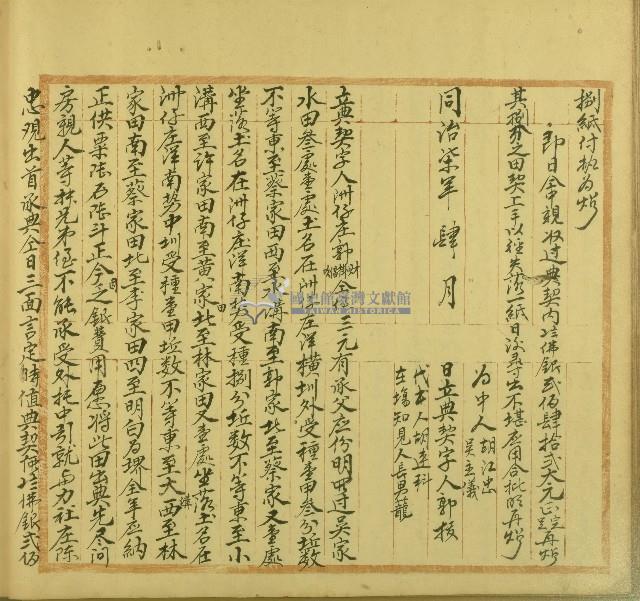 捌紙付執為炤
即日仝中親收過典契內㘴佛銀貳佰肆拾貳大元正完足再炤
其歸分之田契上手以經失落一紙日後尋出不堪應用合批明再炤
為中人 胡江忠
吳主義
同治柒年肆月 日立典契字人郭扳
代書人胡連科
在場知見人長男龍
立典契字人洲仔庄郭 仝侄三元有承父應份明買過吳家
水田叁處壹處土名在洲仔庄洋橫圳外受種壹甲叁分坵數
不等東至蔡家田西至 溝南至郭家北至蔡家又壹處
坐落土名在洲仔庄洋南勢受種捌分坵數不等東至小
溝西至許家田南至黃家田北至林家田又壹處坐落土名在
洲仔庄洋南勢中圳受種壹甲坵數不等東至大溝西至林
家田南至蔡家田北至李家田四至明白為界全年應納
正供粟陸石陸斗正今因乏銀費用愿將此田出典先尽问
房親人等叔兄弟侄不能承受外托中引就與力社庄陈
忠現出首承典仝日三面言定時值典契価㘴佛銀弍佰
國史館臺灣文獻館
TAIWAN